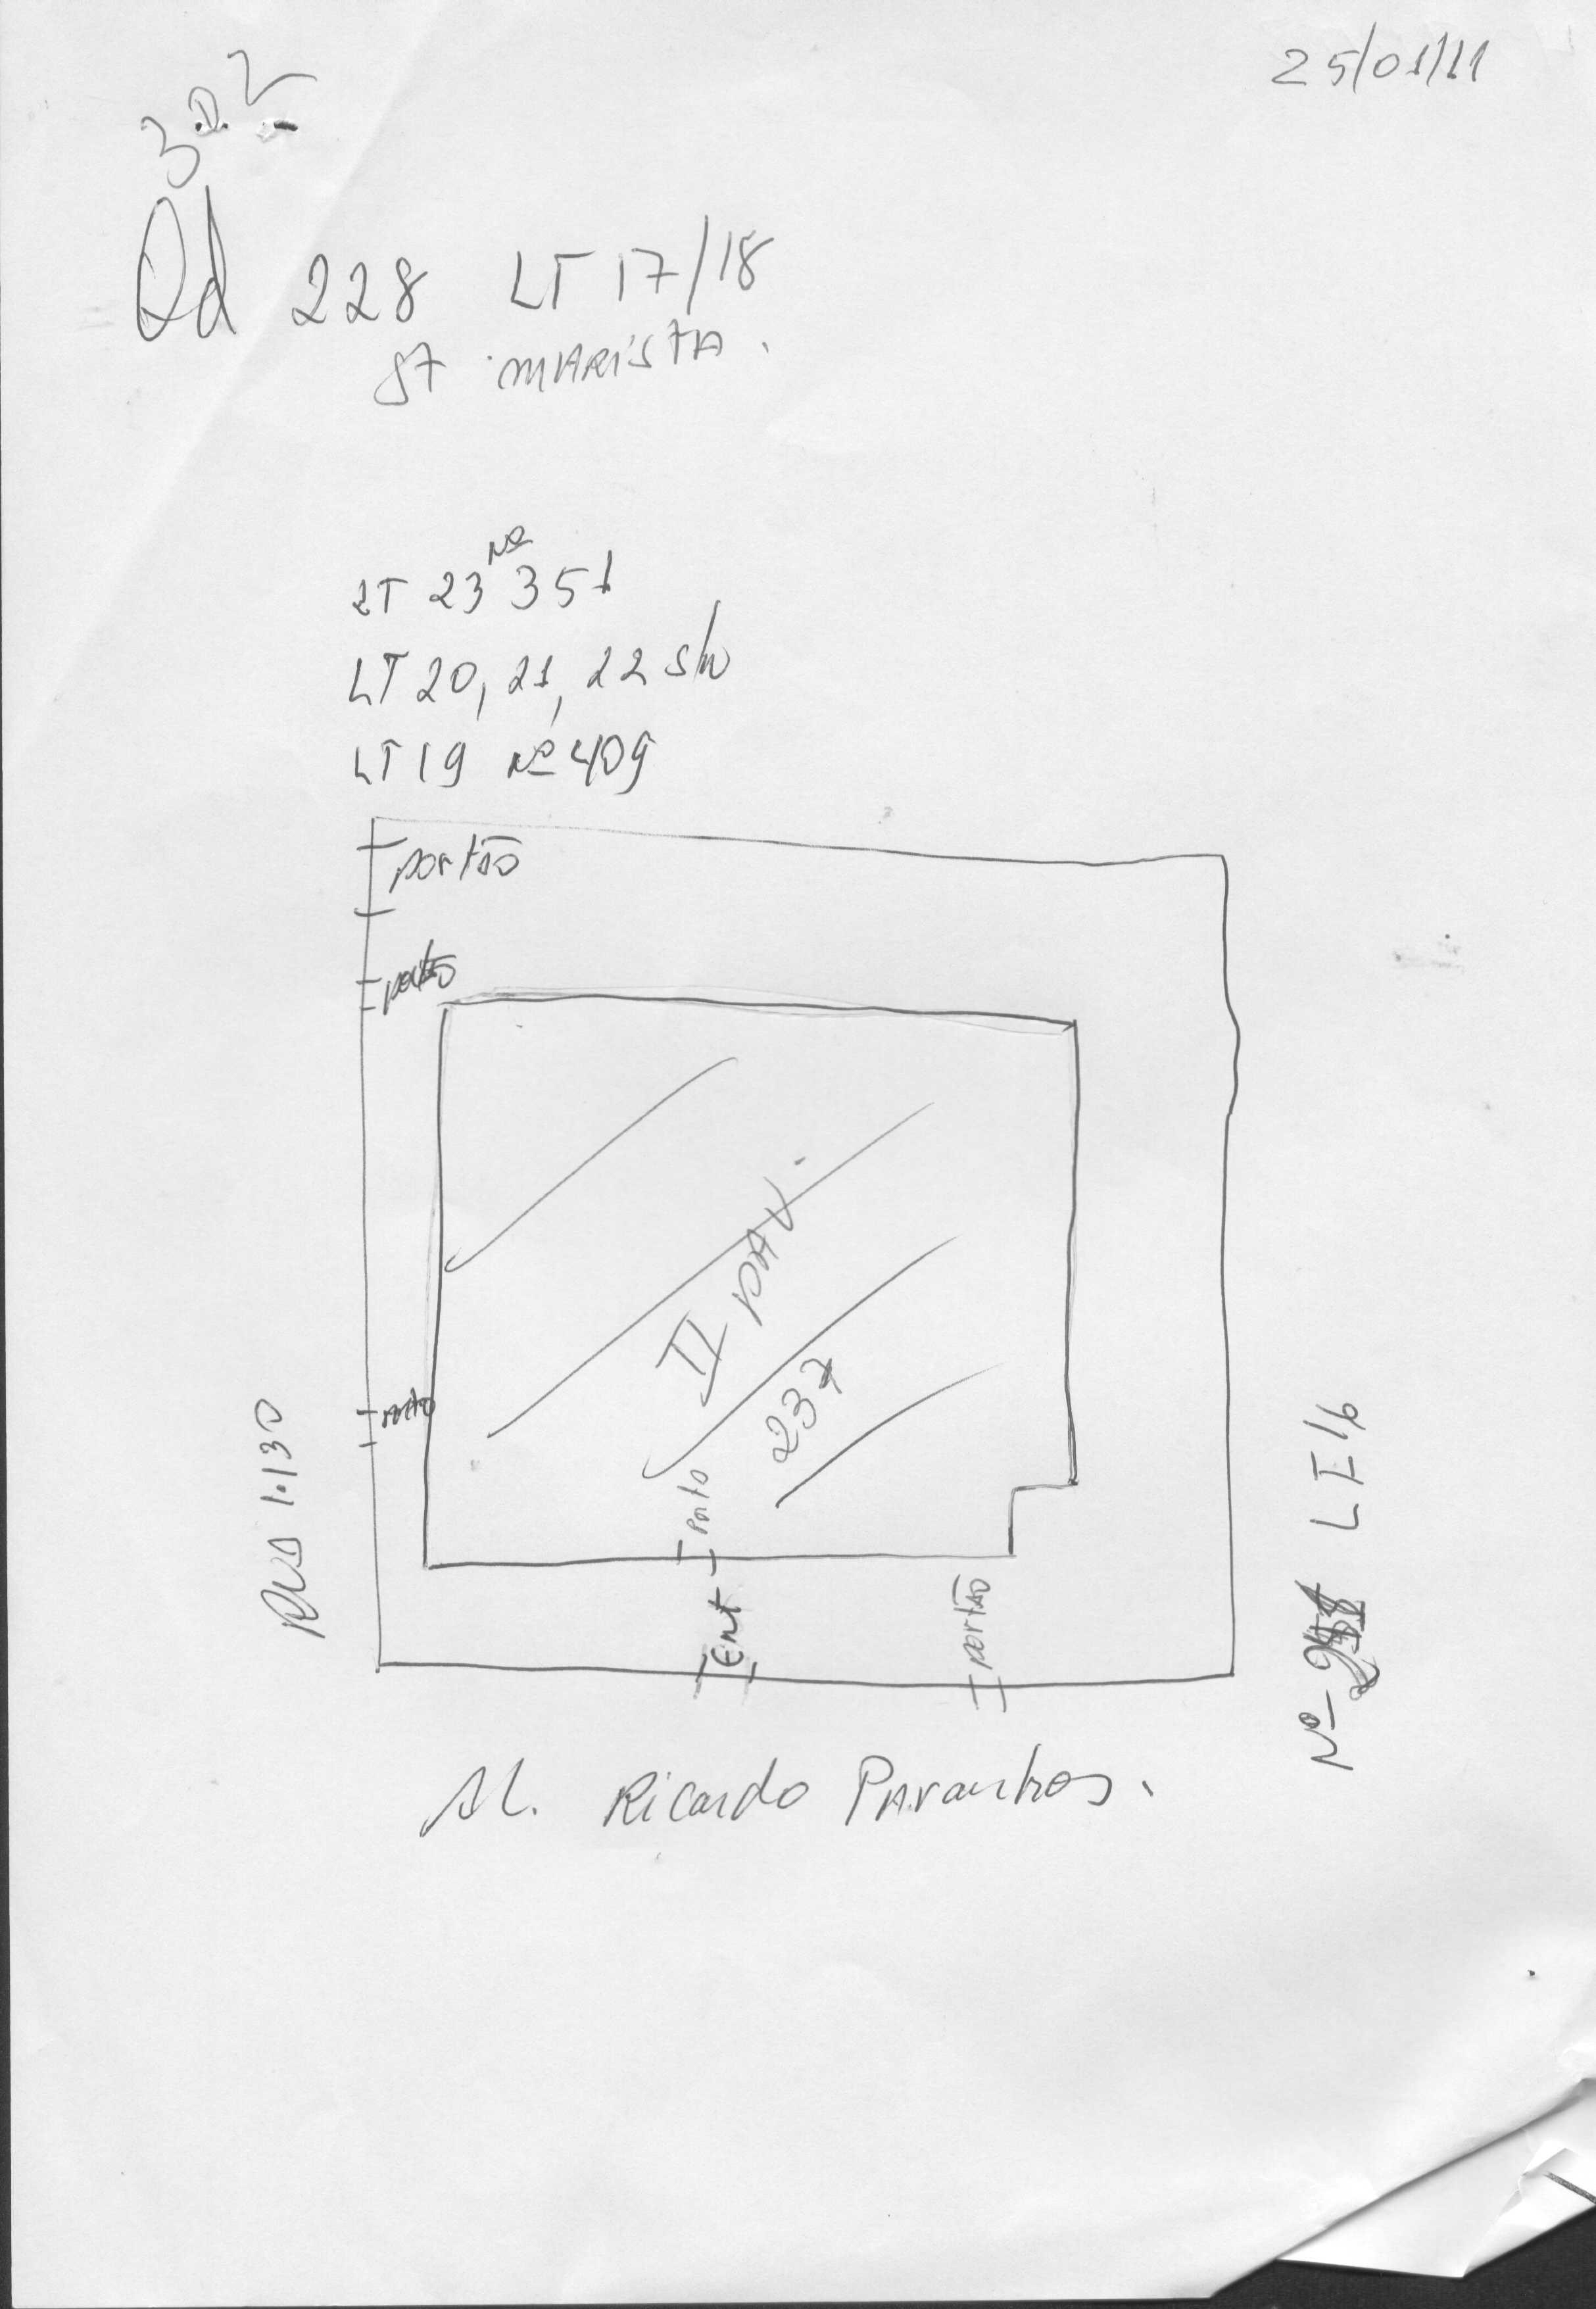 25/01/11
302
Qd 228 LT 17/18
ST MARISTA.
LT 23 Nº 351
LT 20, 21, 22 s/n
LT 19 Nº 409
portão
portão
II PAV.
237
RUA 1.130
Ent
portão
Nº LT 16
Al. Ricardo Paranhos.